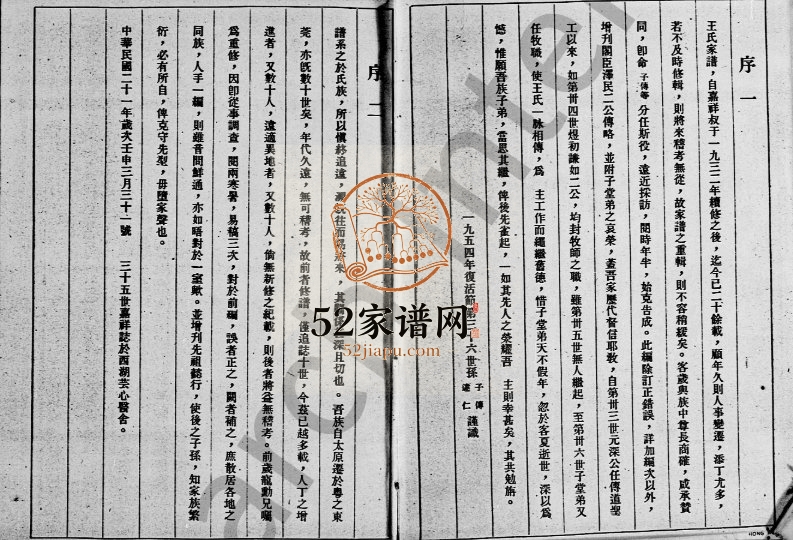 序一
王氏家譜，自嘉祥叔于一九三二年續修之後，迄今已二十餘載，顧年久則人事變遷，添丁尤多，
若不及時修輯，則將來稽考無從，故家譜之重輯，則不容稍緩矣。客歲與族中尊長商確，咸承贊
同，卽命子傳等分任斯役，遠近採訪，閱時年半，始克告成。此編除訂正錯誤，詳加編次以外，
增刋閣臣澤民二公傳略，並附子堂弟之哀榮，蓋吾家歷代篤信耶敎，自第卅三世元深公任傳道
工以來，如第卅四世煜初謙如二公，均封牧師之職，雖第卅五世無人繼起，至第卅六世子堂弟又
任牧職，使王氏一脉相傳，爲　主工作而繩繼舊德，惜子堂弟天不假年，忽於客夏逝世，深以爲
憾，惟願吾族子弟，當思其繼，俾後先雀起，一如其先人之榮耀吾　主則幸甚矣，其共勉旃。
一九五四年復活節第三十六世孫 子傳 仁 謹識
序二
譜系之於氏族，所以愼終追遠，往而爲將來，其　深且切也。吾族自太原遷於粤之東
莞，亦旣數十世矣，年代久遠，無可稽考，故前者修譜，僅追誌十世，今茲已越多載，人丁之增
進者，又數十人，遠適異地者，又數十人，倘無新修之紀載，則後者將益無稽考。前歲寵勳兄囑
爲重修，因卽從事調查，閱兩寒暑，易稿三次，對於前編，誤者正之，闕者補之，庶散居各地之
同族，人手一編，則雖音問鮮通，亦如晤對於一室歟。並增刋先祖懿行，使後之子孫，知家族繁
衍，必有所自，俾克守先型，毋墮家聲也。
中華民國二十一年歲次壬申三月三十一號　三十五世嘉祥誌於西湖芸心醫舍。
52家谱网
52jiapu.com
HONG